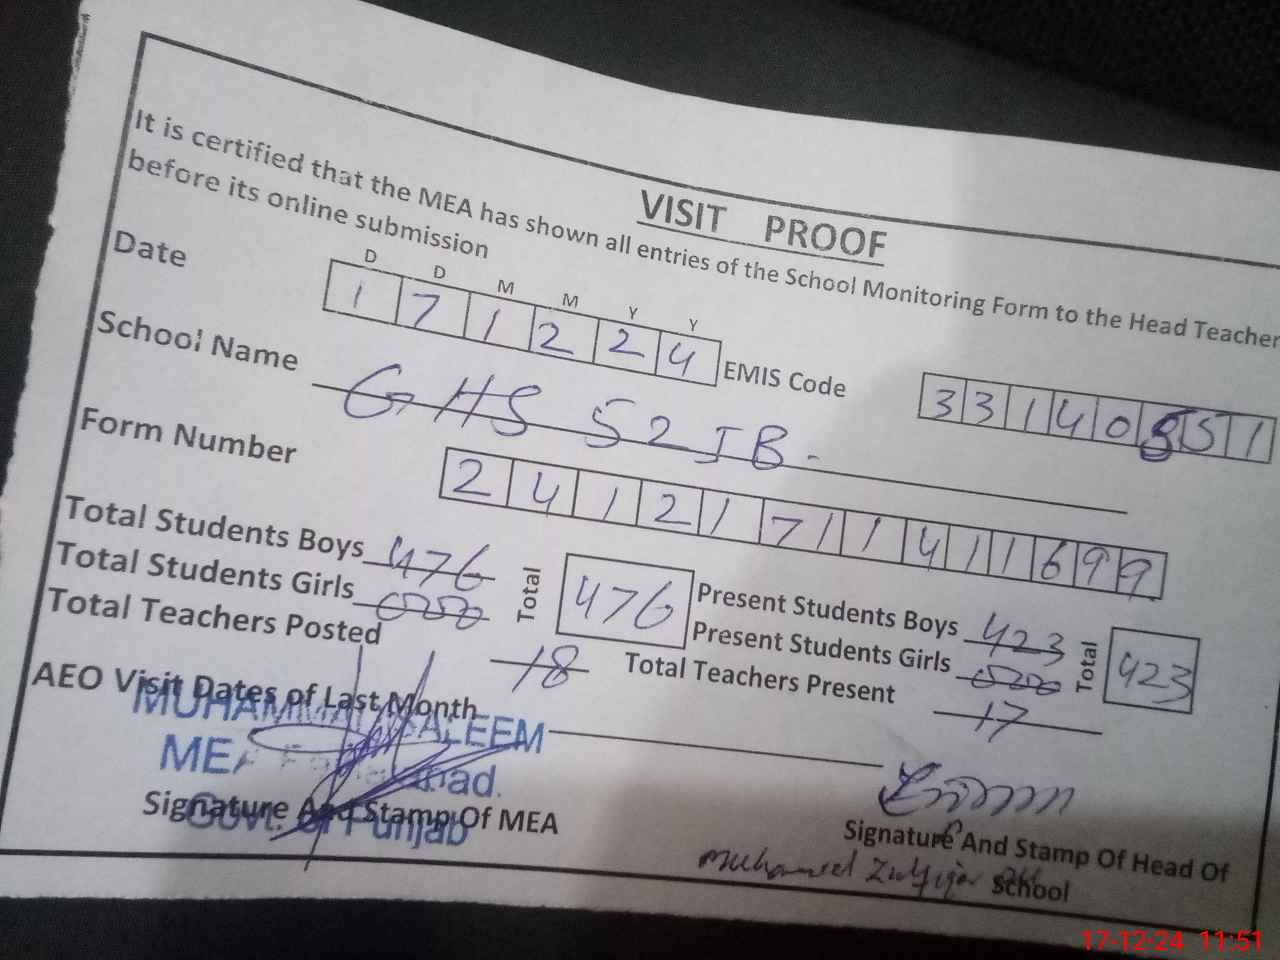 VISIT PROOF
It is certified that the MEA has shown all entries of the School Monitoring Form to the Head Teacher
before its online submission
D D M M Y Y
Date 1 7 1 2 2 4 EMIS Code 3 3 1 4 0 5 5 1
School Name GHS 52 JB.
Form Number 2 4 1 2 1 7 1 1 4 1 1 6 9 9
Total Students Boys 476 Total 476 Present Students Boys 423 Total 423
Total Students Girls 000 Present Students Girls 000
Total Teachers Posted 18 Total Teachers Present 17
AEO Visit Dates of Last Month
MUHAMMAD SALEEM
MEA Faisalabad.
Govt. of Punjab
Signature And Stamp Of MEA
Signature And Stamp Of Head Of
School
Muhammad Zulfiqar
17-12-24 11:51